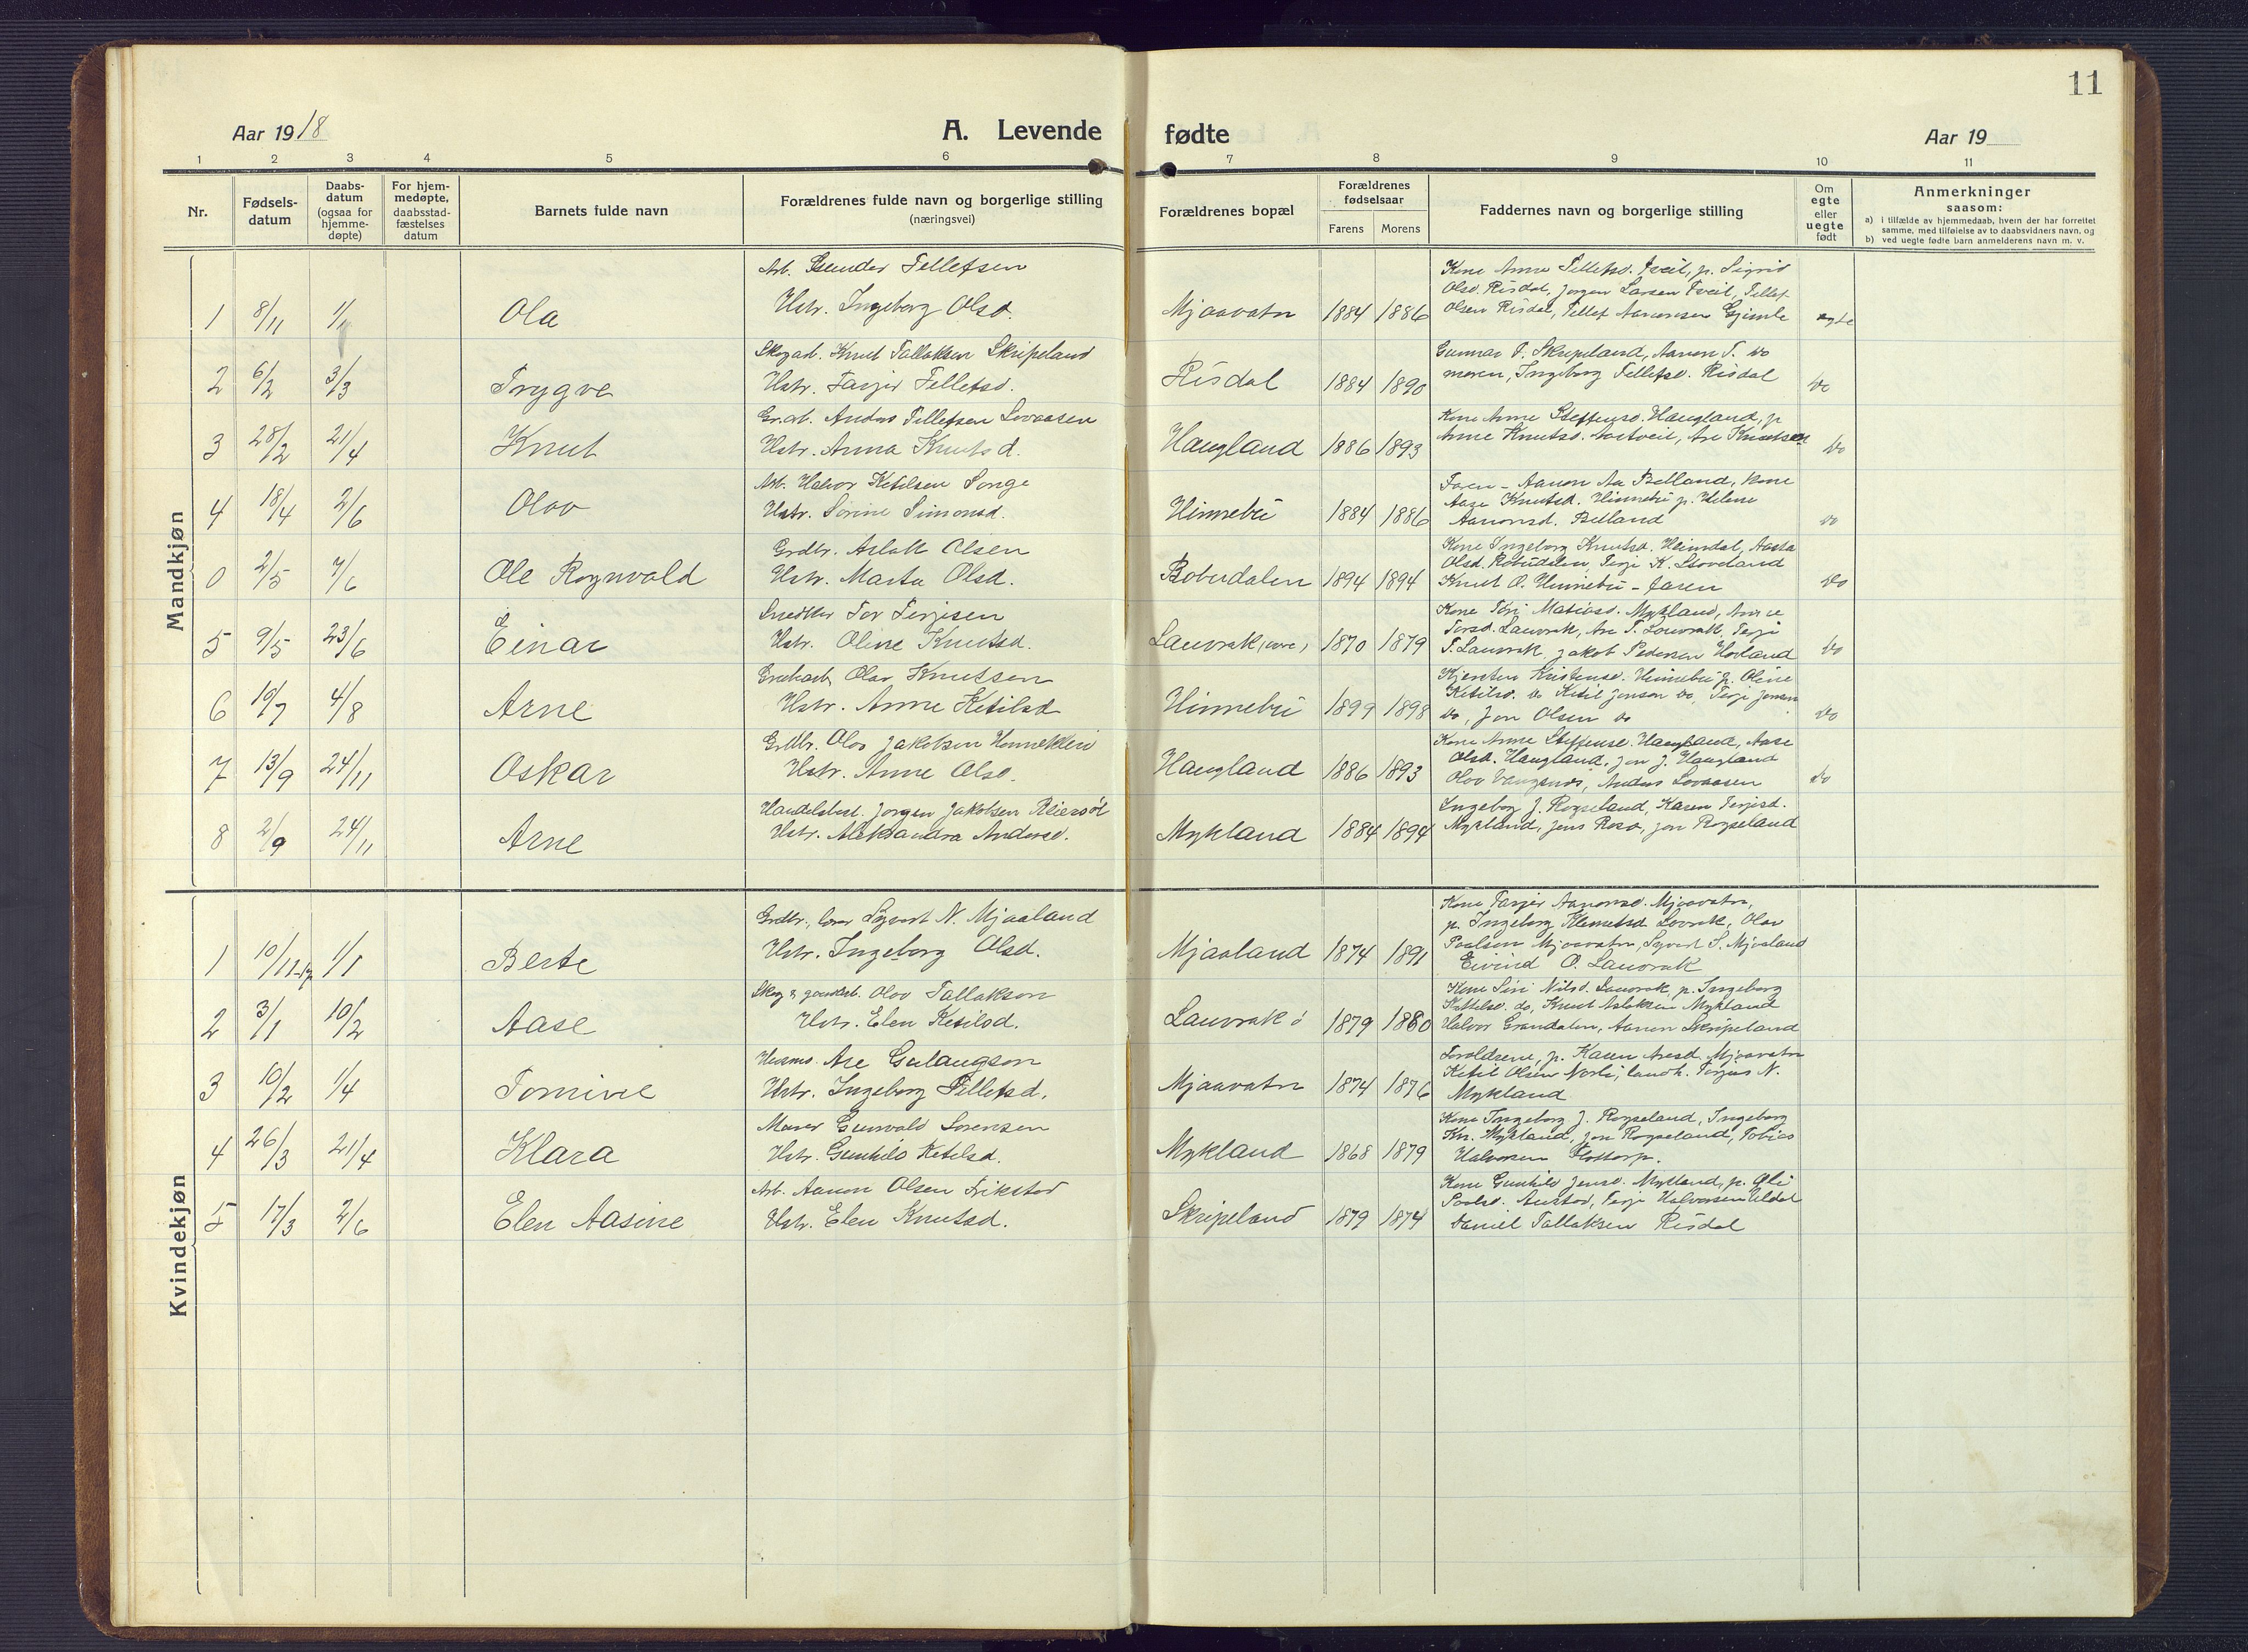 11
Aar 1918
A. Levende fødte
Aar 19
1 2 3 4 5 6 7 8 9 10 11
Nr.
Fødsels-
datum
Daabs-
datum
(ogsaa for
hjemme-
døpte)
For hjem-
medøpte,
daabsstad-
fæstelses
datum
Barnets fulde navn
Forældrenes fulde navn og borgerlige stilling
(næringsvei)
Forældrenes bopæl
Forældrenes
fødselsaar
Farens Morens
Faddernes navn og borgerlige stilling
Om
egte
eller
uegte
født
Anmerkninger
saasom:
a) i tilfælde av hjemmedaab, hvem der har forrettet
samme, med tilføielse av to daabsvidners navn, og
b) ved uegte fødte barn anmelderens navn m. v.
Mandkjøn
Arb. Tellefsen
Kone Anne Tellefsd. Tveit, p. Sigrid
Olsd. Risdal, Jørgen Larsen Tveit, Tellef
1 8/11 1/1 Ola Hstr. Ingeborg Olsd. Mjaavatn 1884 1886 Olsen Risdal, Tellef Aanonsen Gjimle egte
Skogarb. Knut Tallaksen Skripeland
Gunnar T. Skripeland, Aanon T. do
2 6/2 3/3 Trygve Hstr. Tarjer Tellefsd. Risdal 1884 1890 moren, Ingeborg Tellefsd. Risdal do
Gr.arb. Anders Tellefsen Lovaasen
Kone Anne Steffensd. Haugland, p
3 28/2 21/4 Knut Hstr. Anna Knutsd. Haugland 1886 1893 Anne Knutsd. Austveit, Are Knutsen do
Arb. Halvor Ketilsen Songe
Faren - Aanon Aa Belland, Kone
Aase Knutsd. Hinnebu p. Helene
4 18/4 2/6 Olov Hstr. Sørine Simonsd. Hinnebu 1884 1886 Aanonsd. Belland do
Grdbr. Aslak Olsen
Kone Ingeborg Knutsd. Heimdal, Aasta
Olsd. Bobudalen, Terje K. Stoveland
0 2/5 7/6 Ole Rognvald Hstr. Marta Olsd. Bobudalen 1894 1894 Knut O. Hinnebu - faren do
Tor Terjesen
Kone Tøri Matiasd. Mykland, Anne
Torsd. Lauvrak, Are T. Lauvrak, Terje
5 9/5 23/6 Einar Hstr. Oline Knutsd. Lauvrak 1870 1879 T. Lauvrak, Jakob Pedersen Hovland do
Olav Knutsen
Kjersten Kristensd. Hinnebu p. Oline
Ketilsd. do Ketil Jensen do, Terje Jensen
6 19/7 4/8 Arne Hstr. Anne Ketilsd Hinnebu 1899 1898 do, Jon Olsen do do
Grdbr. Olov Jakobsen
Kone Anne Steffensd. Haugland, Aase
Olsd. Haugland, Jon J. Haugland
7 13/9 24/11 Oskar Hstr. Anne Olsd. Haugland 1886 1893 Olov Vangsnes, Anders Lovaasen do
Handelsbest. Jørgen Jakobsen Reiersøl
Ingeborg J. Røyseland, Karen Terjesd.
8 2/9 24/11 Arne Hstr. Aleksandra Andersd. Mykland 1884 1894 Mykland, Jens Roso, Jon Røyseland
Kvindekjøn
Grdbr., lærer Syvert N. Mjaaland
Kone Tarjer Aanonsd. Mjaavatn,
p. Ingeborg Klemetsd Lovrak, Olav
1 10/11-17 1/1 Berte Hstr. Ingeborg Olsd. Mjaaland 1874 1891 Poalsen Mjaavatn, Syvert S. Mjaaland
Eivind O. Lauvrak
Skog & gaardarb. Olov Tallakson
Kone Siri Nilsd. Lauvrak, p. Ingeborg
Kettilsd. do, Knut Aslaksen Mykland
2 3/1 10/2 Aase Hstr. Elen Ketilsd. Lauvrak 1879 1880 Halvor Grandalen, Aanon Skripeland
Husm. Are Gulaugson
Foreldrene, p. Karen Aresd. Mjaavatn
Ketil Olsen Norli, landh. Terjus N.
3 10/2 1/4 Tomine Hstr. Ingeborg Tellefsd. Mjaavatn 1874 1876 Mykland
Murer Gunvald Sørensen
Kone Ingeborg J. Røyseland, Ingeborg
Kn. Mykland, Jon Røyseland, Tobias
4 26/3 21/4 Klara Hstr. Gunhild Ketilsd. Mykland 1868 1879 Halvorsen Flottorp.
Arb. Aanon Olsen Frikstad
Kone Gunhild Jensd. Mykland, p. Oli
Poalsd. Austad, Terje Halvorsen Uldal
5 17/3 2/6 Elen Aasine Hstr. Elen Knutsd. Skripeland 1879 1874 Daniel Tallaksen Risdal